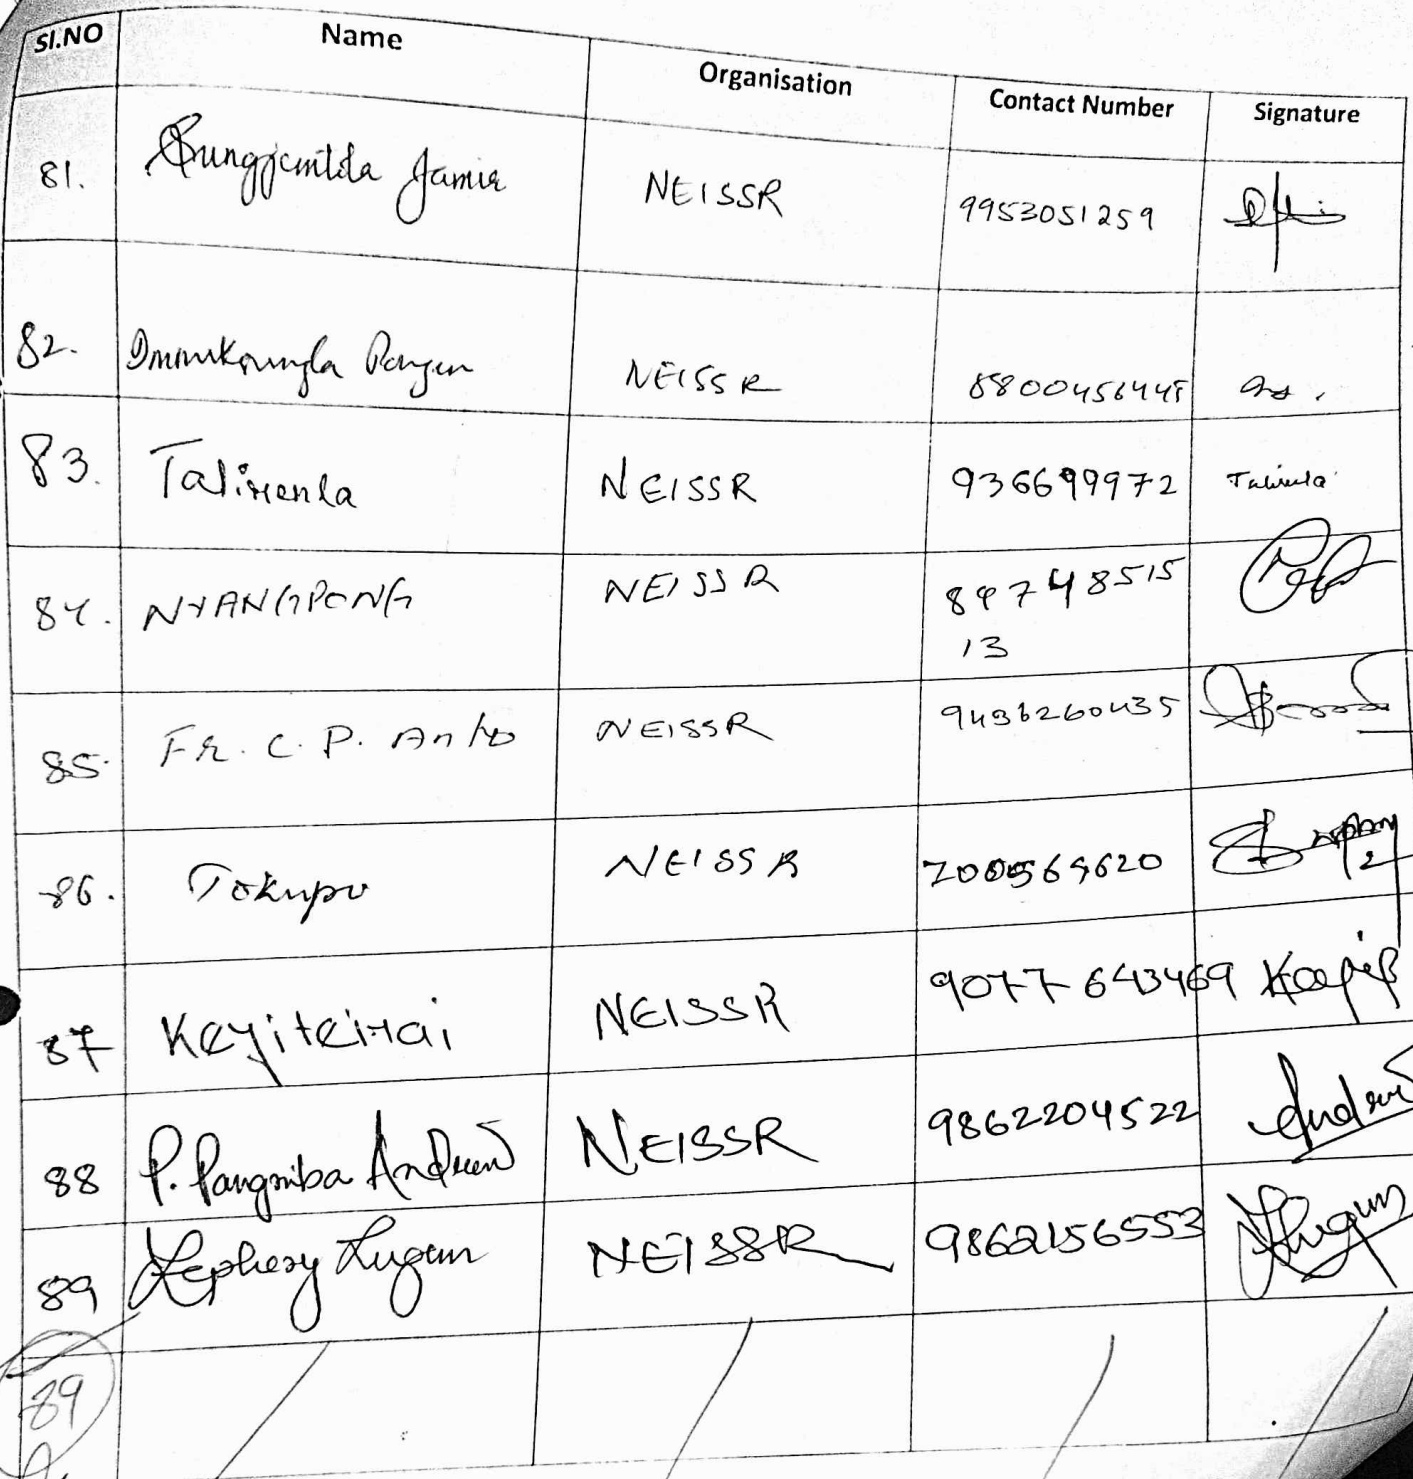 Sl.NO Name Organisation Contact Number Signature
81. Jamir NEISSR 9953051259
82. NEISSR
83. Talirenla NEISSR 936699972
84. NYANGPONG NEISSR 8974 8515
13
85. Fr. C. P. Anto NEISSR 9436260435
86. Tokupu NEISSR
87 Keyiteirai NEISSR 9077643469
88 P. Pangmiba Andrew NEISSR 9862204522 Andrew
89 Zephery Lugun NEISSR 9862156553 Lugun
89